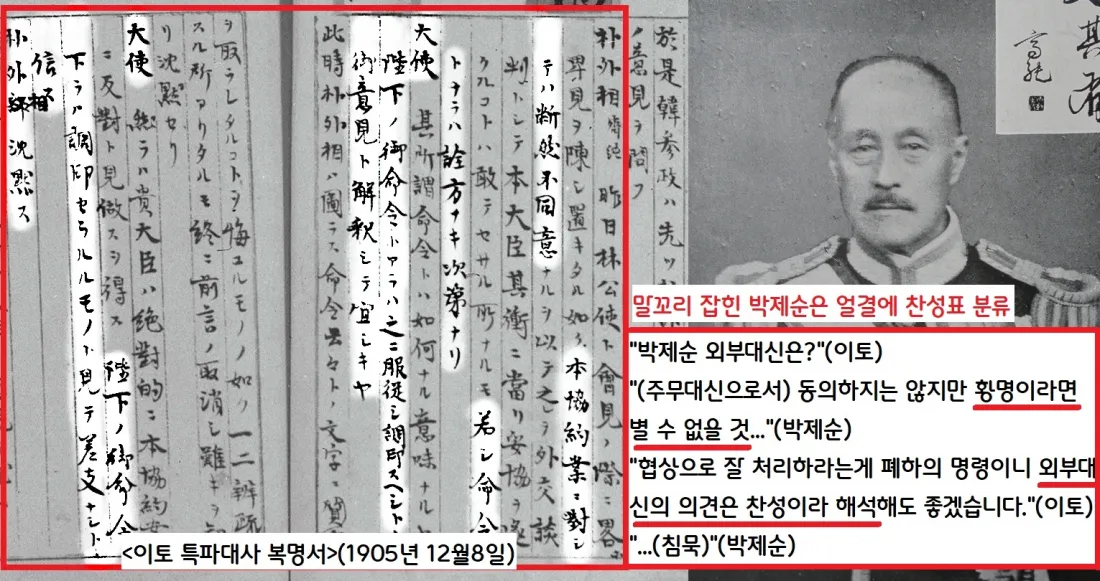 於是韓參政ハ先ツ
ノ意見ヲ問フ
朴外相 齊純 昨日林公使ト會見ノ際ニ畧
卑見ヲ陳シ置キタル如ク本協約案ニ對シ
テハ断然不同意ナルヲ以テ之ヲ外交談
判トシテ本大臣其衝ニ當リ妥協ヲ遂
クルコトハ敢テセサル所ナルモ若シ命令
トナラハ詮方ナキ次第ナリ
大使 其所謂命令トハ如何ナル意味ナル
陛下ノ御命令トアラハ之ニ服從シ調印スヘシト
御意見ト解釈シテ宜シキヤ
此時朴外相ハ圖ラス命令云々ト文字ニ質
ヲ取ラレタルコトヲ悔ユルモノノ如ク一二辨疏
スル所アリタルモ終ニ前言ノ取消シ難キヲ知
リ沈黙セリ
大使 然ラハ貴大臣ハ絶對的ニ本協約案
ニ反對ト見做スヲ得ス 陛下ノ御命令
下ラハ調印セラルルモノト見テ差支ナシト
信
朴外相 沈黙ス
<이토 특파대사 복명서>(1905년 12월8일)
말꼬리 잡힌 박제순은 얼결에 찬성표 분류
"박제순 외부대신은?"(이토)
"(주무대신으로서) 동의하지는 않지만 황명이라면
별 수 없을 것..."(박제순)
"협상으로 잘 처리하라는게 폐하의 명령이니 외부대
신의 의견은 찬성이라 해석해도 좋겠습니다."(이토)
"...(침묵)"(박제순)